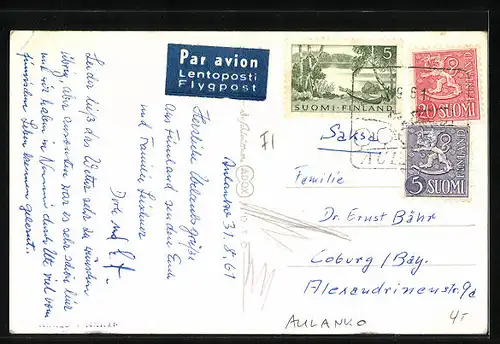 Par avion
Lentoposti
Flygpost
5
SUOMI-FINLAND
20 SUOMI
5 SUOMI
Aulanko 31.8.61
Herzliche Urlaubsgrüße
aus Finnland senden Euch
und Familie
Leider ließ das Wetter sehr zu wünschen
übrig, aber ansonsten war es sehr schön hier
und wir haben in durch Ute viel vom
finnischen Leben kennen gelernt.
Saksa
Familie
Dr. Ernst Bähr
Coburg / Bay.
Alexandrinenstr. 9a
AULANKO